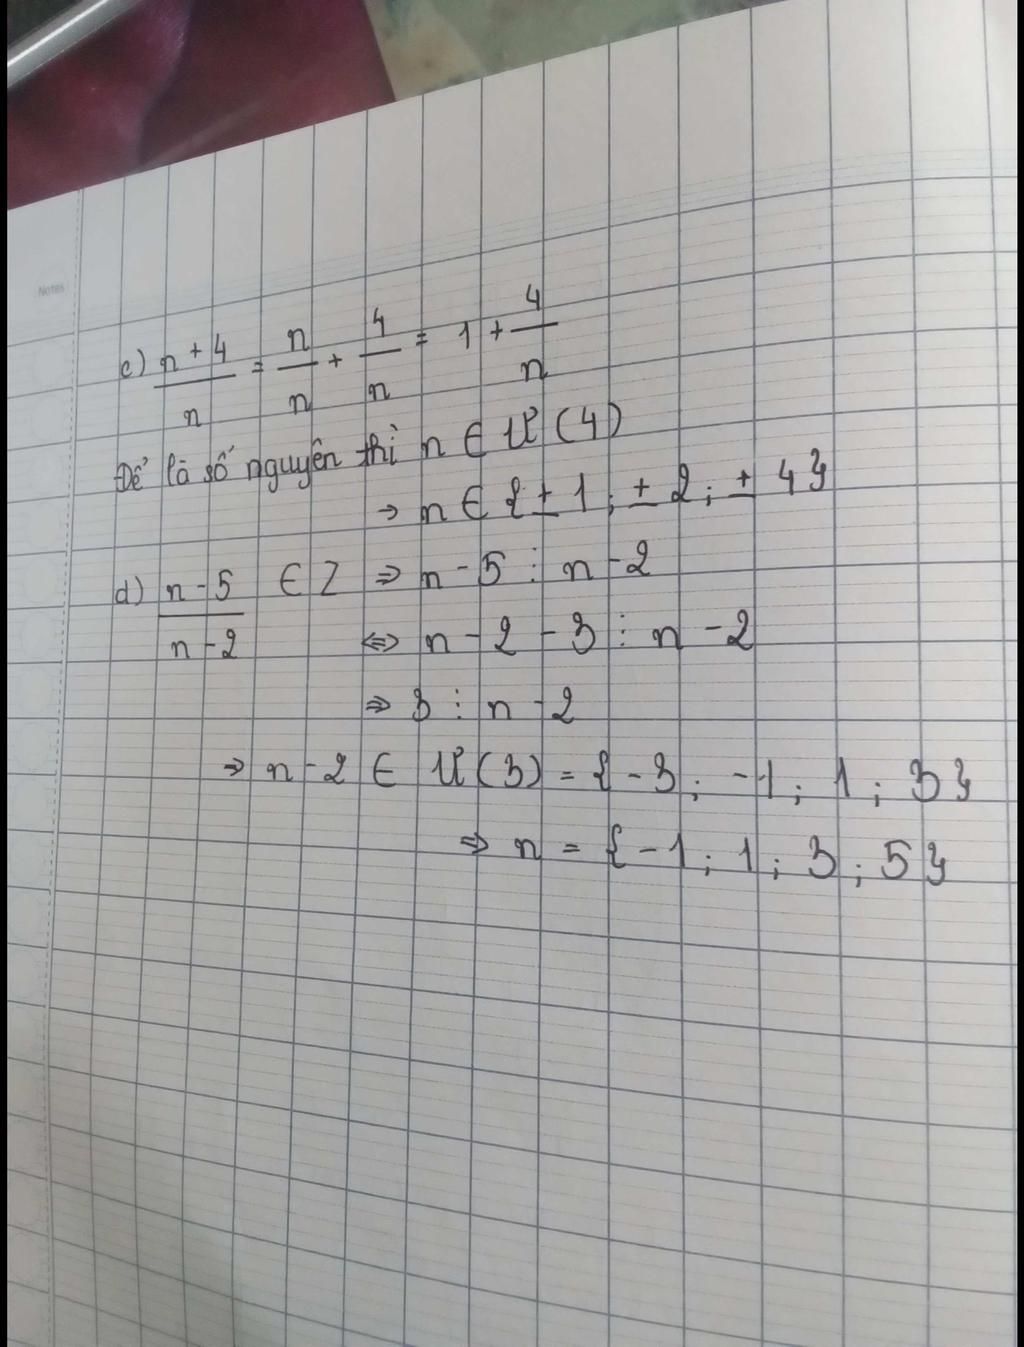 Notes
c) n + 4 / n = n / n + 4 / n = 1 + 4 / n
Để là số nguyên thì n ∈ Ư (4)
→ n ∈ {± 1 ; ± 2 ; ± 4}
d) n - 5 / n - 2 ∈ Z ⇒ n - 5 ⋮ n - 2
⇔ n - 2 - 3 ⋮ n - 2
⇒ 3 ⋮ n - 2
⇒ n - 2 ∈ Ư (3) = {- 3 ; - 1 ; 1 ; 3}
⇒ n = {- 1 ; 1 ; 3 ; 5}